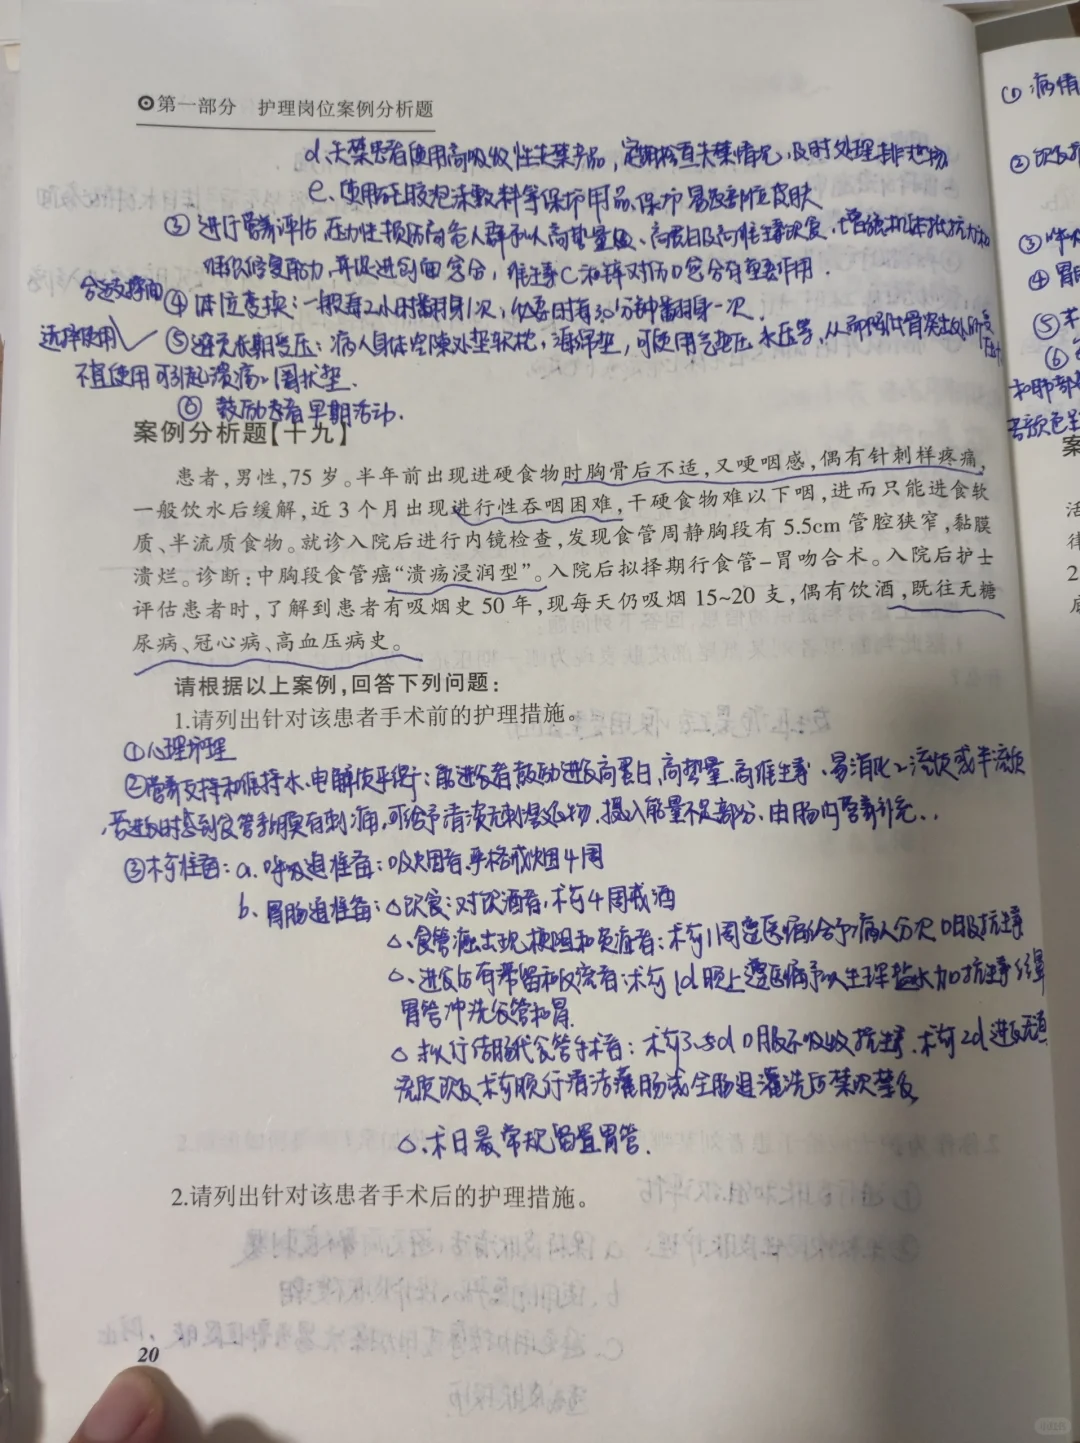 第一部分 护理岗位案例分析题
d.失禁患者使用高吸收性失禁产品，定期检查失禁情况，及时处理排泄物
e.使用硅胶泡沫敷料等保护用品、保护易受部位皮肤
③进行营养评估 压力性损伤高危人群予以高热量、高蛋白及高维生素饮食，增强机体抵抗力和
组织修复能力，并促进创面愈合，维生素C和锌对伤口愈合有重要作用.
合适支撑面
④体位变换：一般每2小时翻身1次，必要时每30分钟翻身一次.
选择使用
⑤避免长期受压：病人身体空隙处垫软枕，海绵垫，可使用气垫 水压等，从而降低骨突出处所受
不宜使用可引起溃疡的圈状垫.
⑥ 鼓励患者早期活动.
案例分析题【十九】
患者，男性，75岁。半年前出现进硬食物时胸骨后不适，又哽咽感，偶有针刺样疼痛，
一般饮水后缓解，近3个月出现进行性吞咽困难，干硬食物难以下咽，进而只能进食软
质、半流质食物。就诊入院后进行内镜检查，发现食管周静胸段有5.5cm管腔狭窄，黏膜
溃烂。诊断：中胸段食管癌“溃疡浸润型”。入院后拟择期行食管-胃吻合术。入院后护士
评估患者时，了解到患者有吸烟史50年，现每天仍吸烟15~20支，偶有饮酒，既往无糖
尿病、冠心病、高血压病史。
请根据以上案例，回答下列问题：
1.请列出针对该患者手术前的护理措施。
①心理护理
②营养支持和维持水、电解质平衡：能进食者鼓励进食高蛋白、高热量、高维生素、易消化的流质或半流质
若进食时感到食管黏膜有刺痛，可给予清淡无刺激食物，摄入能量不足部分，由肠内营养补充..
③术前准备：a.呼吸道准备：吸烟者，严格戒烟4周
b、胃肠道准备：△饮食：对饮酒者，术前4周戒酒
△、食管癌出现梗阻和炎症者：术前1周遵医嘱给予病人分次口服抗生素
△、进食后有滞留和反流者：术前1d晚上遵医嘱予以生理盐水加抗生素经鼻
胃管冲洗食管和胃.
△ 拟行结肠代食管手术者：术前3-5d口服不吸收抗生素、术前2d进食无渣
流质饮食，术前晚行清洁灌肠或全肠道灌洗后禁饮禁食
△、术日晨常规留置胃管.
2.请列出针对该患者手术后的护理措施。
20
① 病情
②饮食
③呼吸
④胃肠
⑤术
⑥
和肺部
案
活
律
2